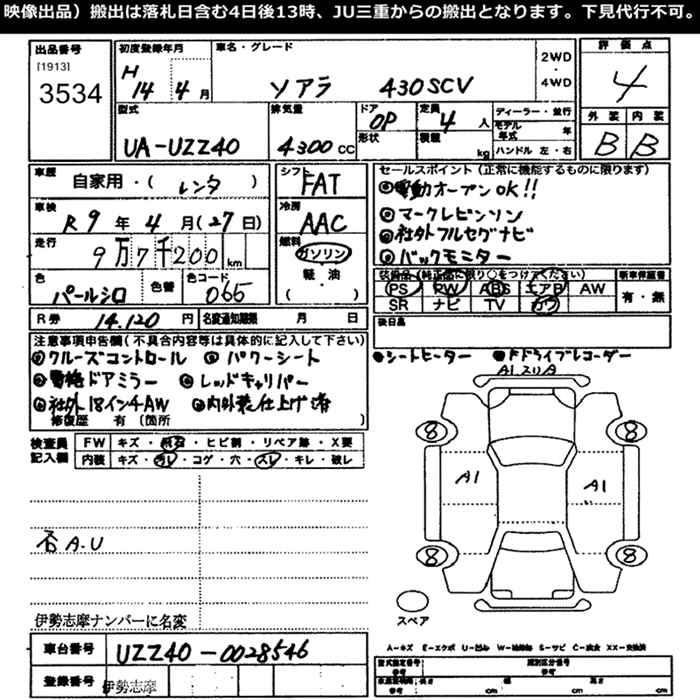 映像出品）搬出は落札日含む4日後13時、JU三重からの搬出となります。下見代行不可。
出品番号
[1913]
3534
初度登録年月
H 14 年 4 月
車名・グレード
ソアラ 430SCV
2WD
・
4WD
評価点
4
型式
UA-UZZ40
排気量
4300 CC
ドア
OP
形状
定員
4 人
積載
kg
ディーラー・並行
モデル年式 年
ハンドル 左・右
外装 内装
B B
車歴
自家用・( レンタ )
シフト
FAT
車検
R9 年 4 月(27日)
冷房
AAC
走行
9万7千200km
燃料
ガソリン
軽・油
( )
色
パールシロ
色替
色コード
065
R券 14.120 円
名変通知期限 月 日
セールスポイント（正常に機能するものに限ります）
電動オープンOK!!
マークレビンソン
社外フルセグナビ
バックモニター
装備品（純正品に限り○をつけてください）
PS PW ABS エアB AW
SR ナビ TV カワ
新車保証書
有・無
後日品
注意事項申告欄(不具合内容等は具体的に記入して下さい)
クルーズコントロール パワーシート
電格ドアミラー レッドキャリパー
社外18インチAW 内外装仕上げ済
修復歴 有 （箇所
シートヒーター ドライブレコーダー
検査員
記入欄
FW キズ・飛石・ヒビ割・リペア跡・X要
内装 キズ・汚レ・コゲ・穴・スレ・キレ・破レ
否 A.U
伊勢志摩ナンバーに名変
A1スリA
8 8
A1 A1
8 8
スペア
A-キズ E-エクボ U-凹ム W-補修跡 S-サビ C-腐食 XX-交換済
車台番号 UZZ40-0028546
登録番号 伊勢志摩
型式指定番号
参考
類別区分番号
参考
長さ
cm
幅
cm
高さ
cm